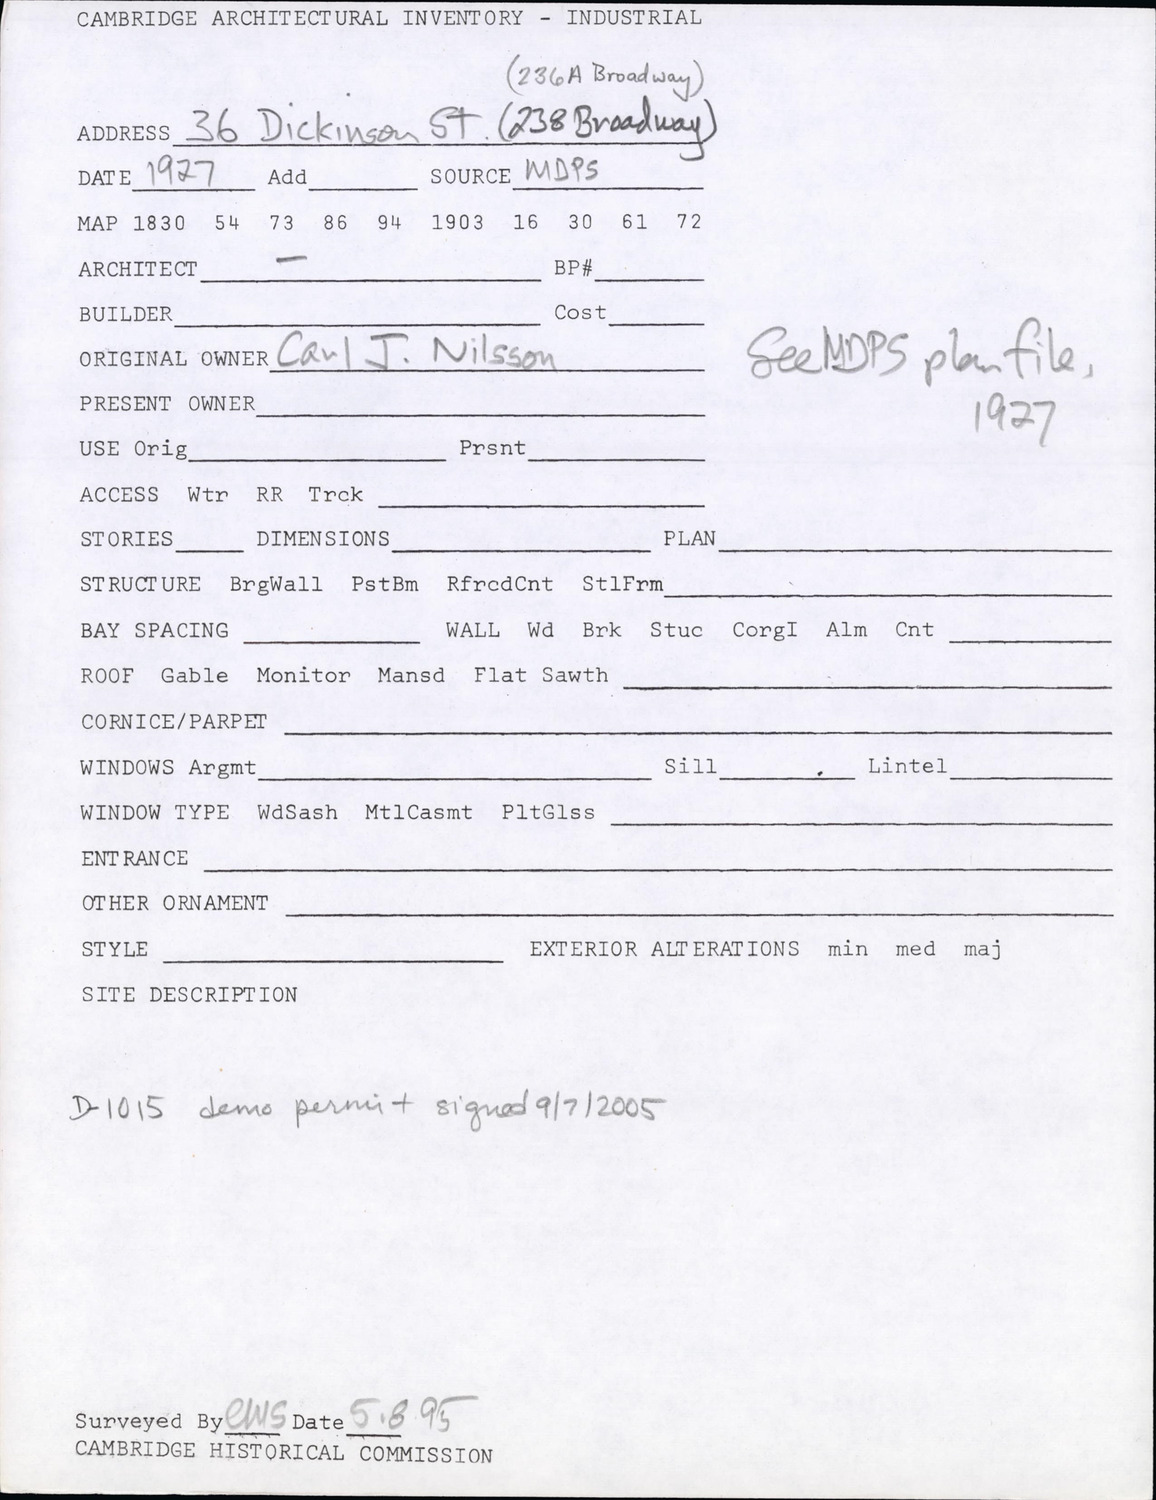 CAMBRIDGE ARCHITECTURAL INVENTORY - INDUSTRIAL
(236A Broadway)
ADDRESS 36 Dickinson St. (238 Broadway)
DATE 1927 Add SOURCE MDPS
MAP 1830 54 73 86 94 1903 16 30 61 72
ARCHITECT — BP#
BUILDER Cost
ORIGINAL OWNER Carl J. Nilsson
See MDPS plan file,
1927
PRESENT OWNER
USE Orig Prsnt
ACCESS Wtr RR Trck
STORIES DIMENSIONS PLAN
STRUCTURE BrgWall PstBm RfrcdCnt StlFrm
BAY SPACING WALL Wd Brk Stuc CorgI Alm Cnt
ROOF Gable Monitor Mansd Flat Sawth
CORNICE/PARPET
WINDOWS Argmt Sill Lintel
WINDOW TYPE WdSash MtlCasmt PltGlss
ENTRANCE
OTHER ORNAMENT
STYLE EXTERIOR ALTERATIONS min med maj
SITE DESCRIPTION
D-1015 demo permit signed 9/7/2005
Surveyed By CWS Date 5.8.95
CAMBRIDGE HISTORICAL COMMISSION